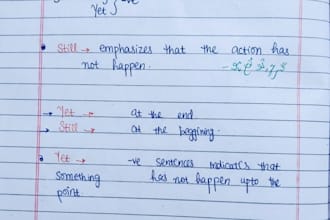 Yet } -ve
• Still → emphasizes that the action has
not happen.
→ Yet → at the end.
→ Still → at the beggining.
• Yet → -ve sentences indicates that
something has not happen upto the
point